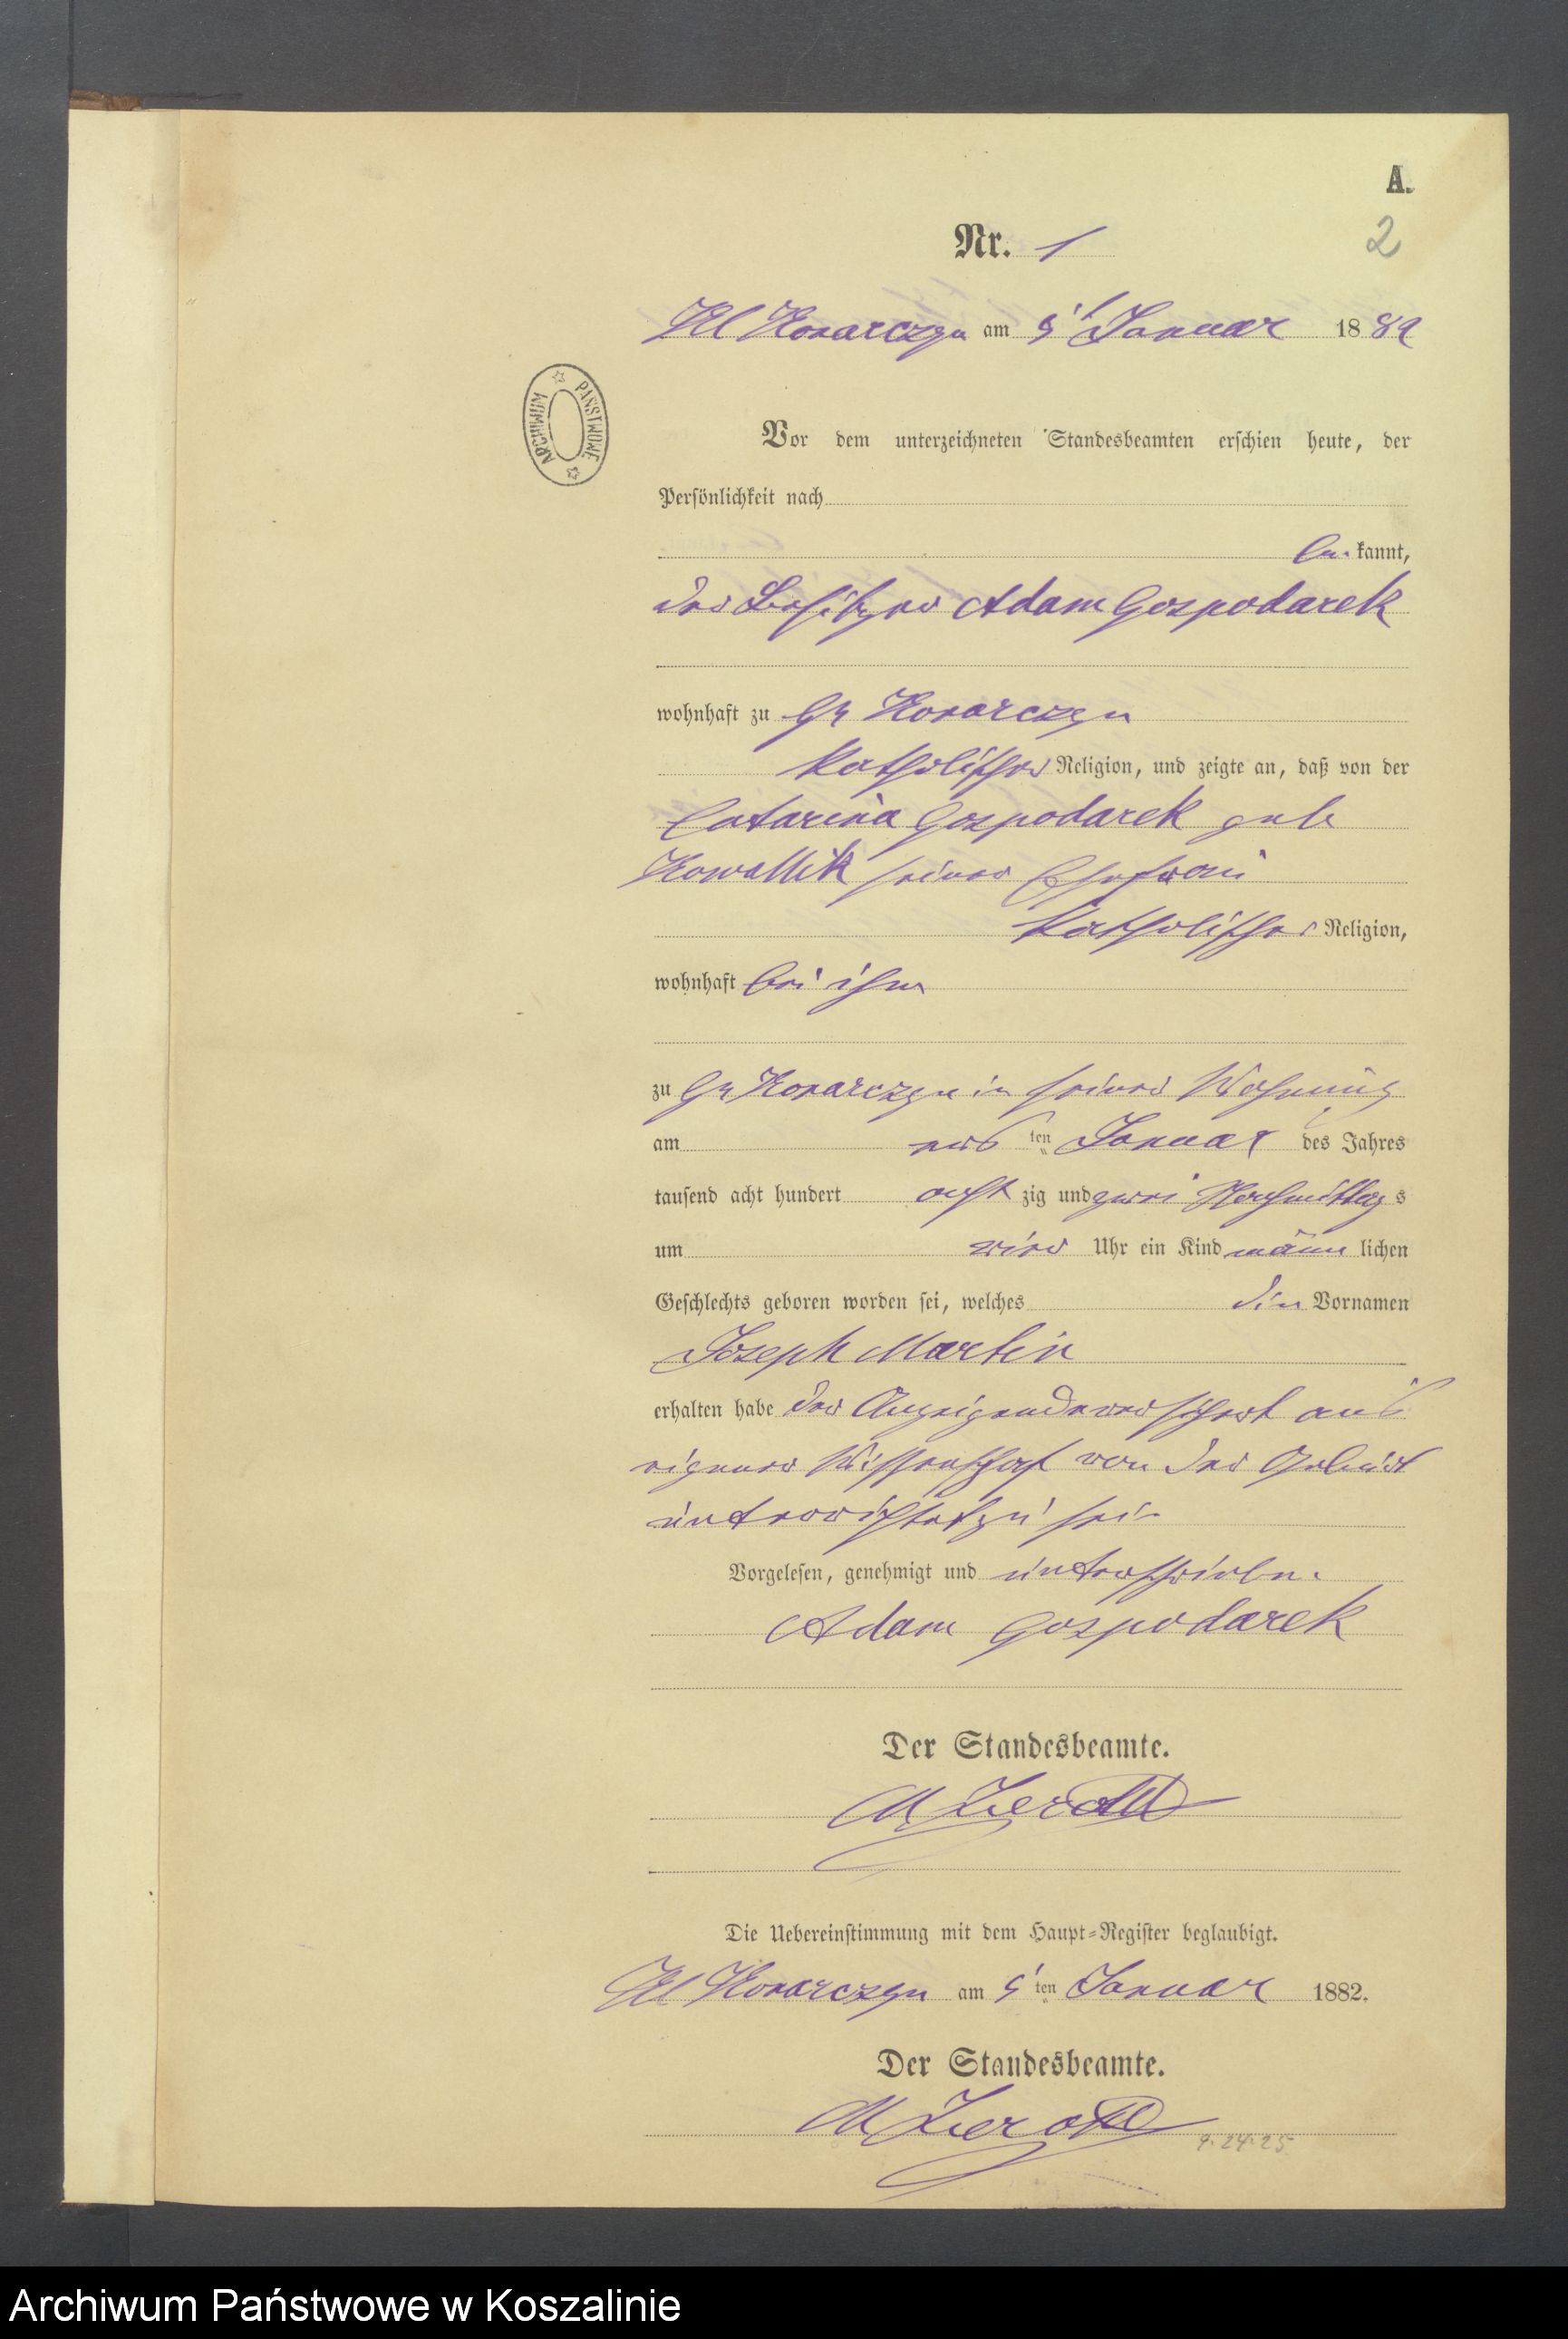 A.
Nr. 1
2
Kl Konarczyn am 5t Januar 1882
ARCHIWUM PAŃSTWOWE
Vor dem unterzeichneten Standesbeamten erschien heute, der
Persönlichkeit nach
be kannt,
der Besitzer Adam Gospodarek
wohnhaft zu Gr Konarczyn
katholischer Religion, und zeigte an, daß von der
Catarina Gospodarek geb
Kowallik seiner Ehefrau
katholischer Religion,
wohnhaft bei ihm
zu Gr Konarczyn in seiner Wohnung
am ers ten Januar des Jahres
tausend acht hundert acht zig und zwei Nachmittag s
um vier Uhr ein Kind männ lichen
Geschlechts geboren worden sei, welches die Vornamen
Joseph Martin
erhalten habe der Anzeigende versichert aus
eigener Wissenschaft von der Geburt
unterrichtet zu sein
Vorgelesen, genehmigt und unterschrieben.
Adam Gospodarek
Der Standesbeamte.
M
Die Uebereinstimmung mit dem Haupt-Register beglaubigt.
Kl Konarczyn am 5 ten Januar 1882.
Der Standesbeamte.
M
9.24.25
Archiwum Państwowe w Koszalinie